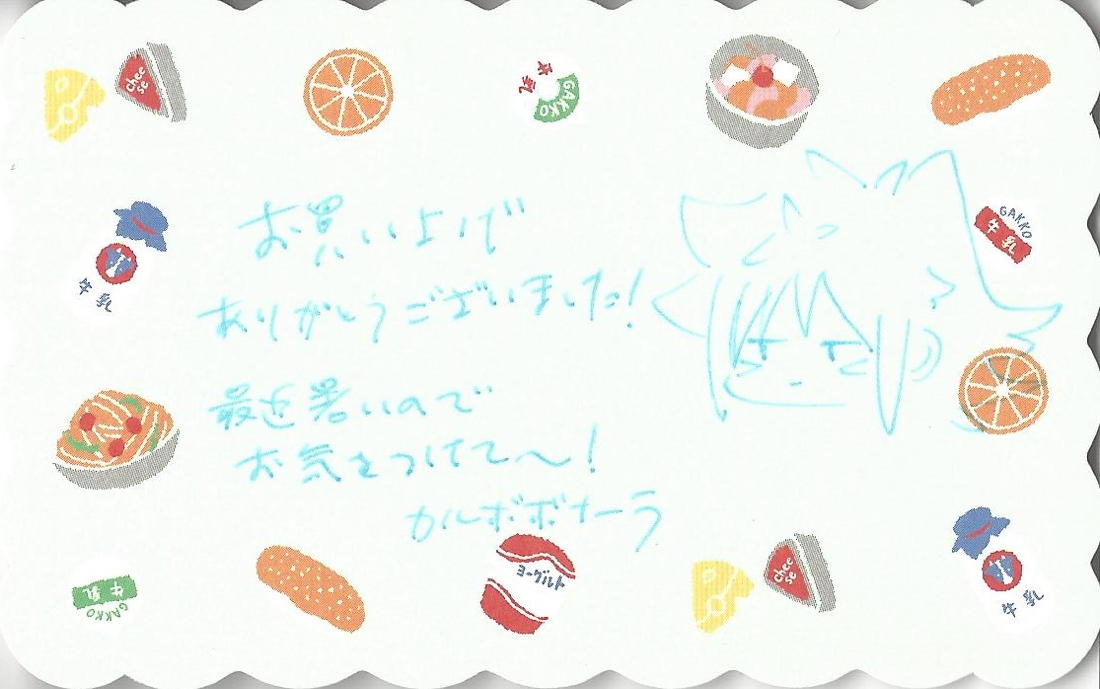 chee
se
牛乳
GAKKO
GAKKO
牛乳
牛乳
お買いよげ
ありがとうございました!
最近暑いので
お気をつけて〜!
カルボボナーラ
牛乳
GAKKO
ヨーグルト
chee
se
牛乳